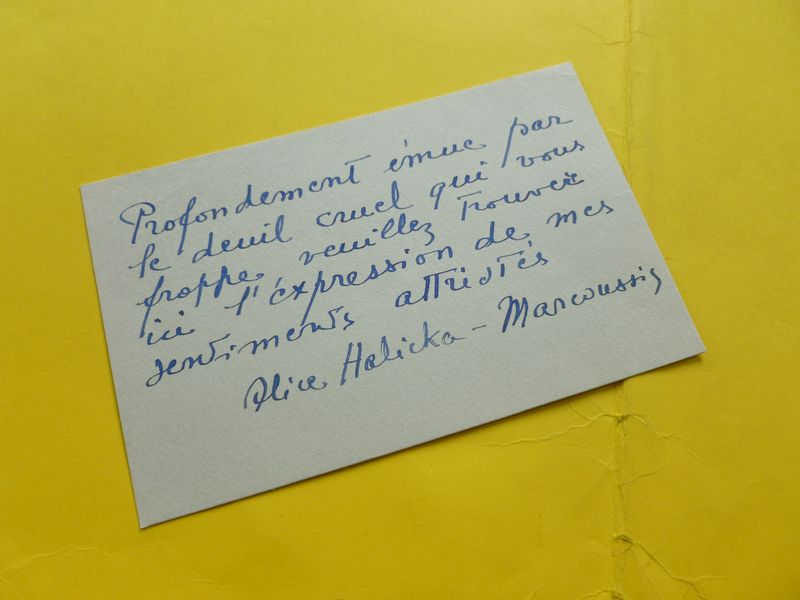 Profondement émue par
le deuil cruel qui vous
frappe, veuillez trouver
ici l'éxpression de mes
sentiments attristés
Alice Halicka - Marcoussis